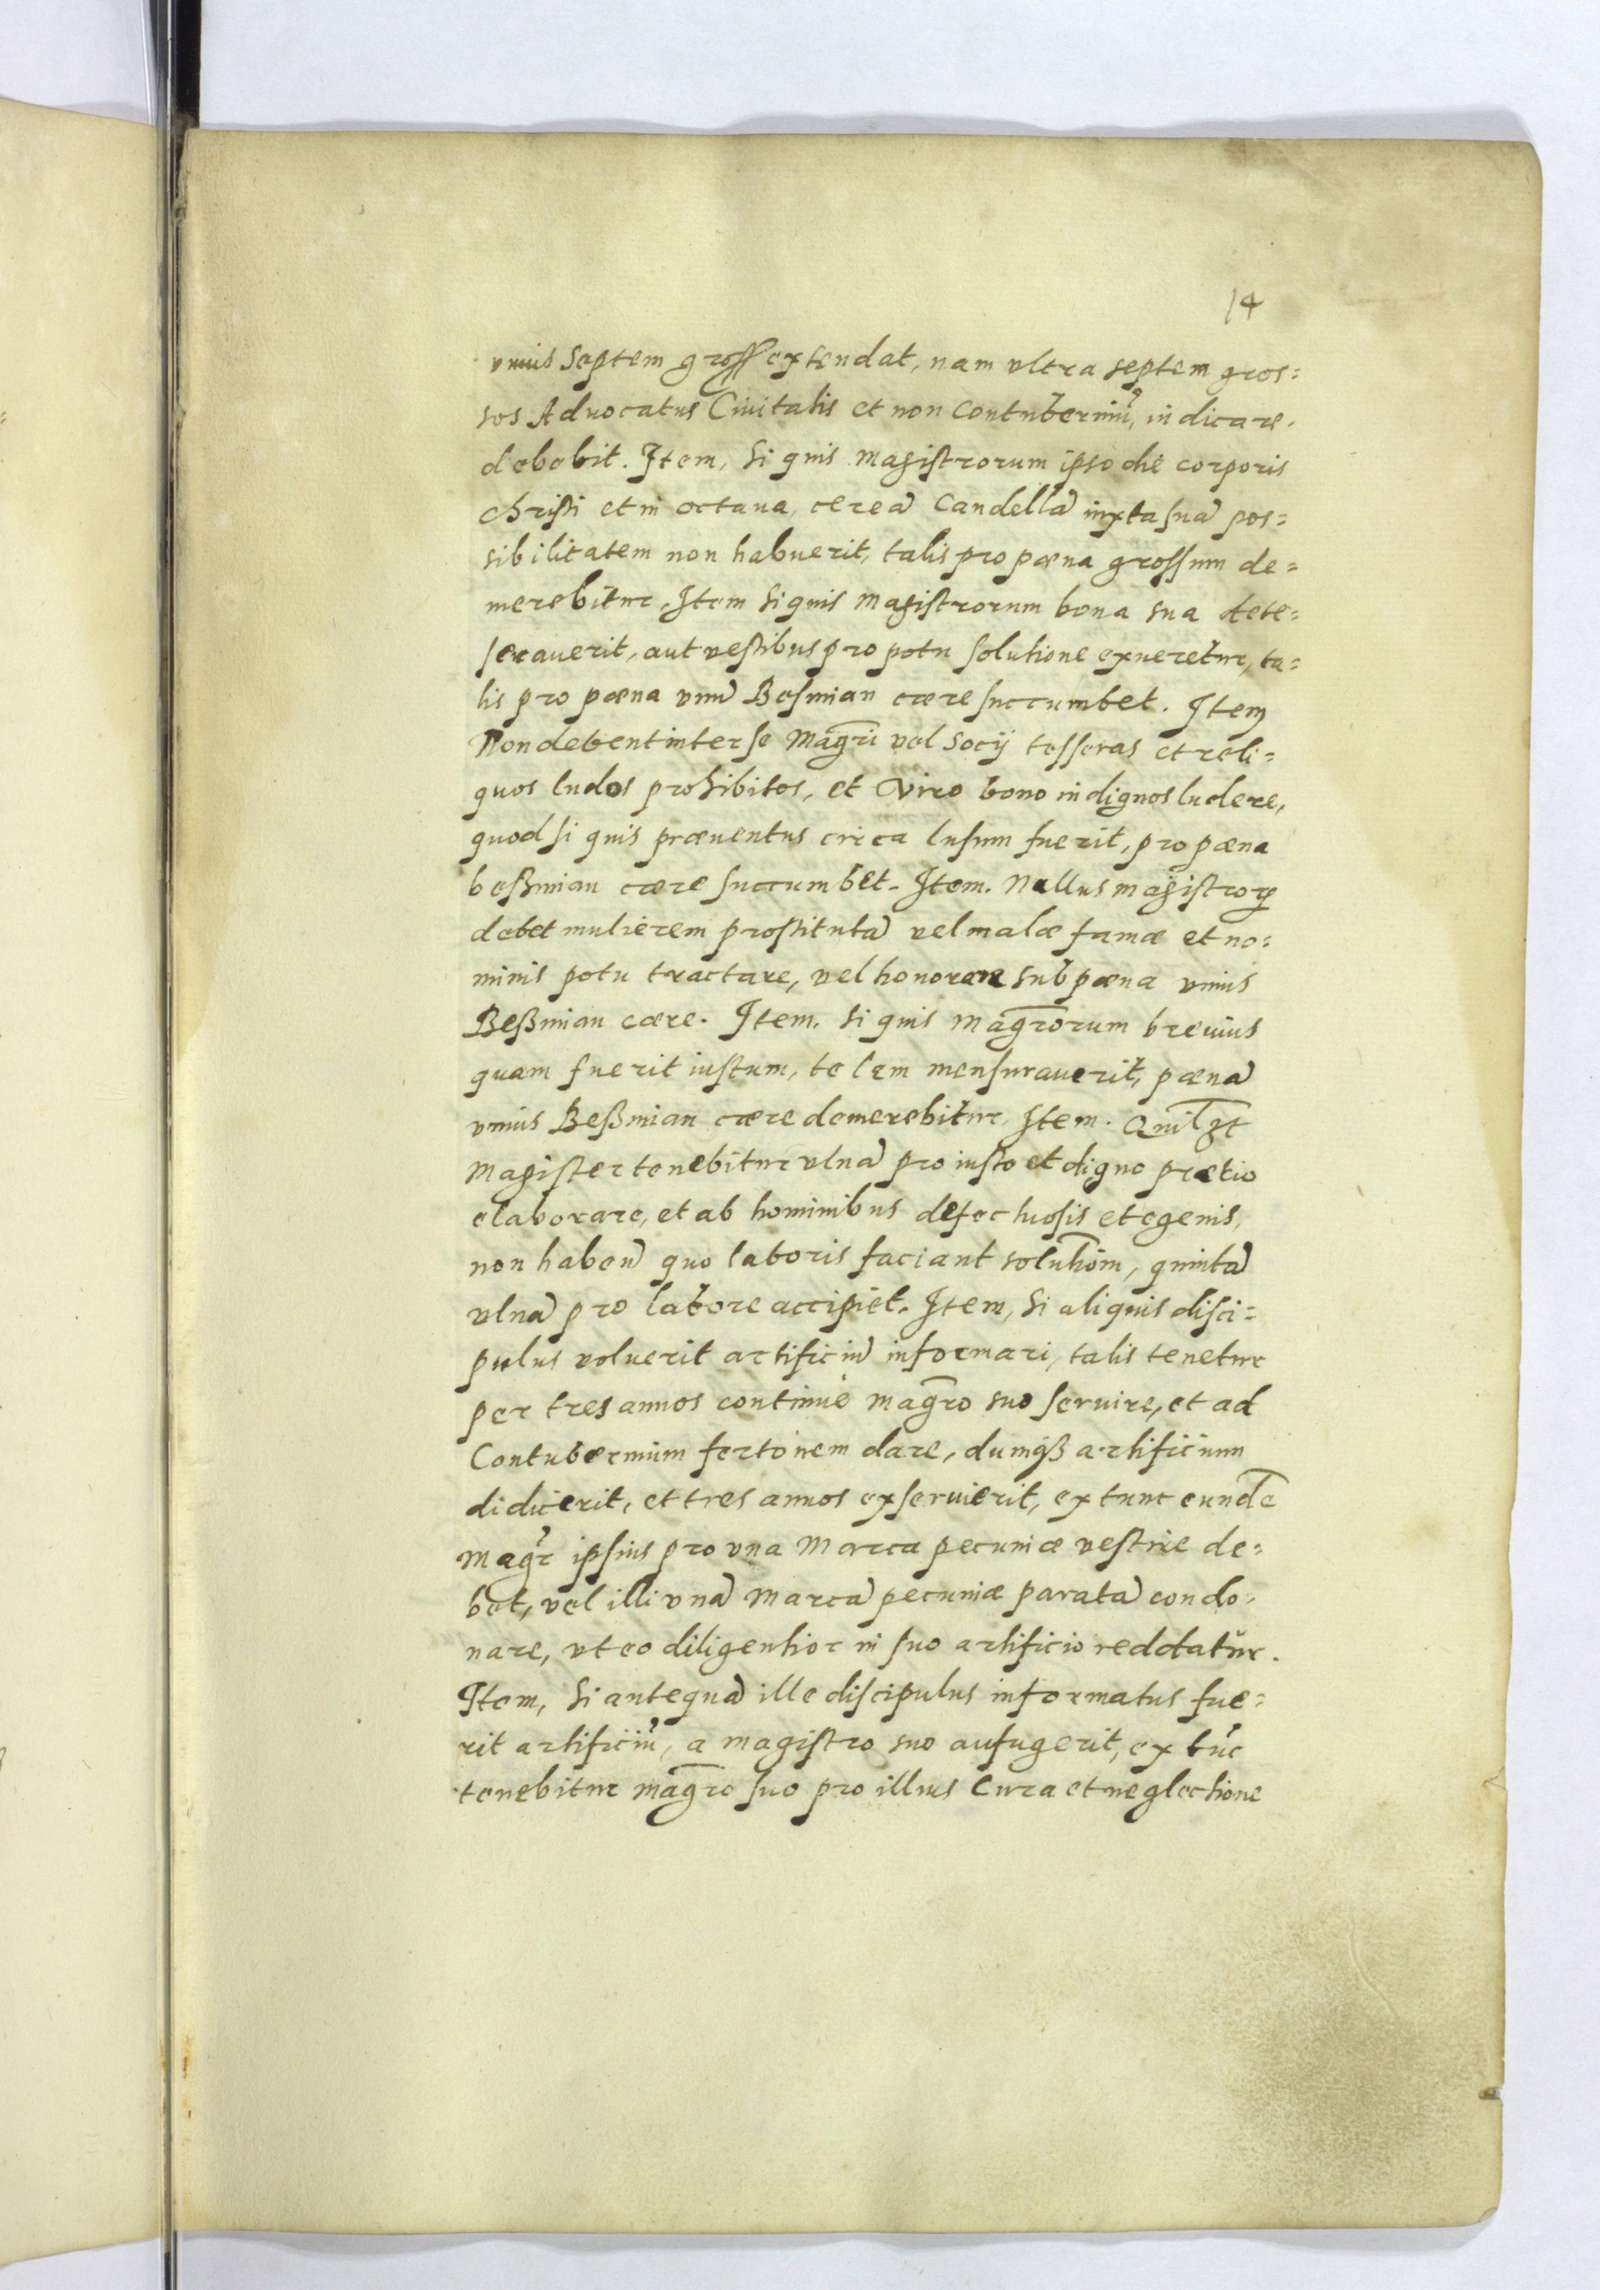 14
vnius Septem gross extendat, nam vltra septem gros=
sos Aduocatus Ciuitatis et non Contuberniũ, iudicare.
debebit. Item, Si quis magistrorum ipso die corporis
christi et in octaua, cereã Candellã iuxta suã pos=
sibilitatem non habuerit, talis pro pæna grossum de=
merebitur, Item Si quis magistrorum bona sua dete=
secauerit, aut vestibus pro potu solutione exueretur, ta=
lis pro pæna vnũ Besmian cære succumbet. Item
Non debent inter se magr̃i vel socij tesseras et reli=
quos ludos prohibitos, et Viro bono indignos ludere,
quod si quis præuentus circa lusum fuerit, pro pæna
beßmian cære succumbet. Item. Nullus magistrorꝝ
debet mulierem prostitutã vel malæ famæ et no=
minis potu tractare, vel honorare sub pæna vnius
Beßmian cære. Item. Si quis magr̃orum breuius
quam fuerit iustum, telem mensurauerit, pænã
vnius Beßmian cære demerebitur, Item. Quilꝫt
Magister tenebitur vlnã pro iusto et digno prætio
elaborare, et ab hominibus defectuosis et egenis,
non haben̄ quo laboris faciant solutiõm, quintã
vlnã pro labore accipiet. Item, Si aliquis disci=
pulus voluerit artificiũ informari, talis tenetur
per tres annos continuè magr̃o suo seruire, et ad
Contubernium fertonem dare, dumqß artificium
didicerit, et tres annos exseruierit, ex tunc eundẽ
magr̃ ipsius pro vna marca pecuniæ vestrie de=
bet, vel illi vnã marcã pecuniæ paratã condo=
nare, vt eo diligentior in suo artificio reddatur.
Item, Si antequã ille discipulus informatus fue=
rit artificiũ, a magistro suo aufugerit, ex tũc
tenebitur magr̃o suo pro illius Cura et neglectione